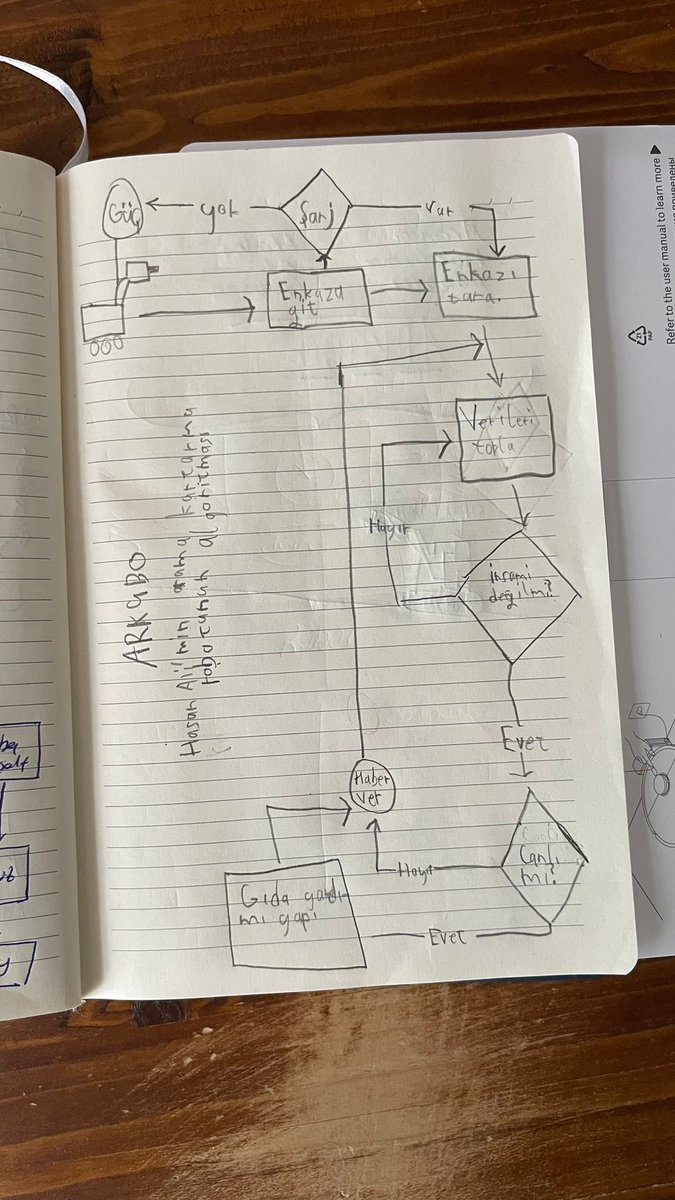 Güç
yok
Şarj
var
Enkaza
git
Enkazı
tara.
Verileri
topla
Hayır
insami
değilmi?
Evet
Canlı
mı?
Hayır
Haber
ver
Gıda yardı-
mı yapı
Evet
ARKABO
Hasan Ali'min arama kurtarma
robotunun algoritması
Refer to the user manual to learn more
21
PAP